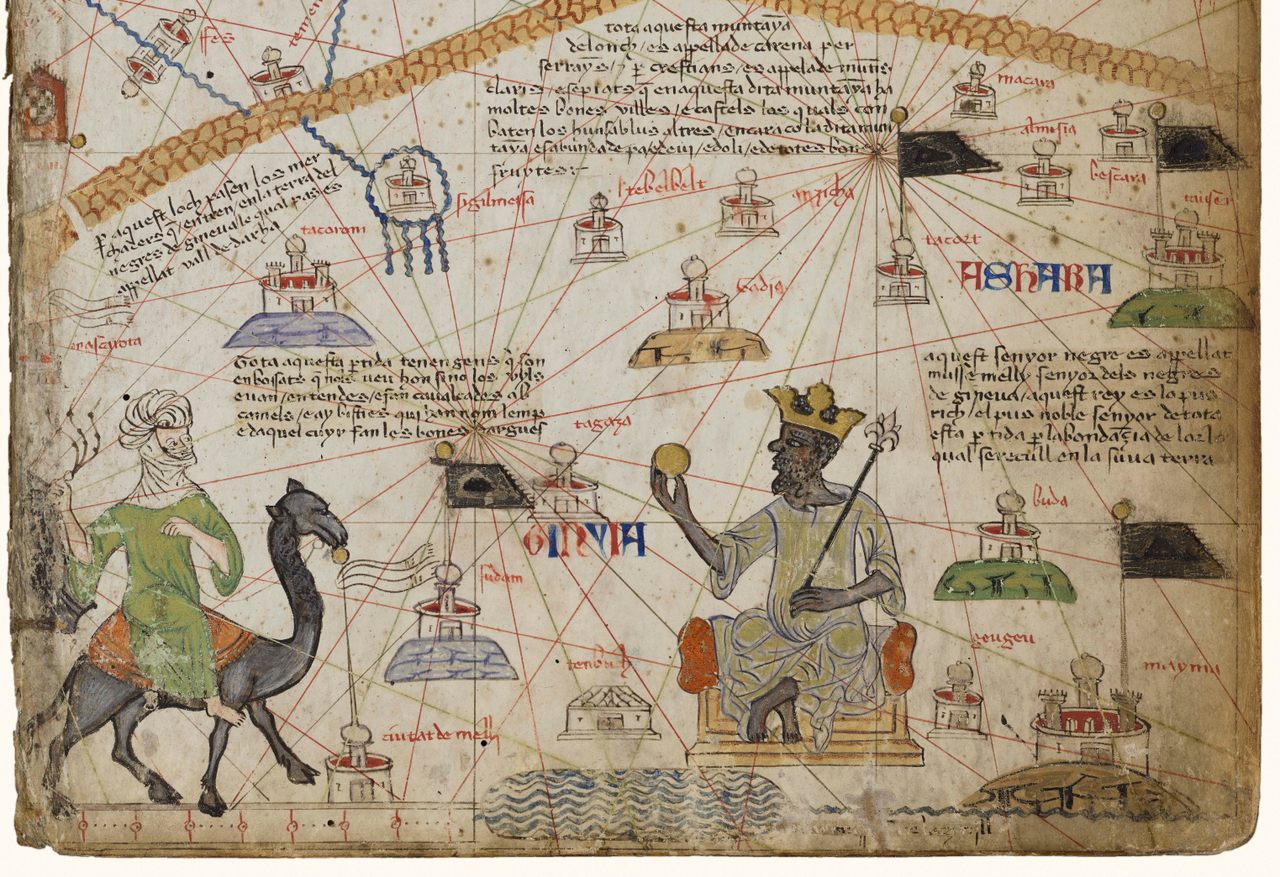 fes
tota aquesta muntaya
de lonch / es appellade carena per
serrayns / e per crestians / es apelade munts
claris / e sepiats que en aquesta dita muntaya ha
moltes bones villes / e castels los quals con
baten los huns ab los altres / encara co la dita mun
taya es abunda de pa e de vi / e d oli / e de totes bones
fruytes:-
macara
almisia
bescara
per aquest loch pasen los mer
chaders que entren en la terra del
negres de gineua lo qual pas es
appellat vall de darha
sigilmessa
tebelbelt
anzicha
tacorom
tacort
ASHARA
Tota aquesta partida tenen gens que son
enboisats que nols veu hom sino los uyls
e uan en tendes / e fan caualcades ab
camels / e ay bisties qui han nom lemp
e daquel cuyr fan les bones dargues
aquest senyor negre es appellat
musse melly senyor dels negres
de gineua / aquest rey es lo pus
rich / el pus noble senyor de tota
esta partida per labondançia de lor lo
qual se recull en la suua terra
tagaza
buda
GINYIA
sudam
tenbuch
geugeu
mayma
ciutat de melli